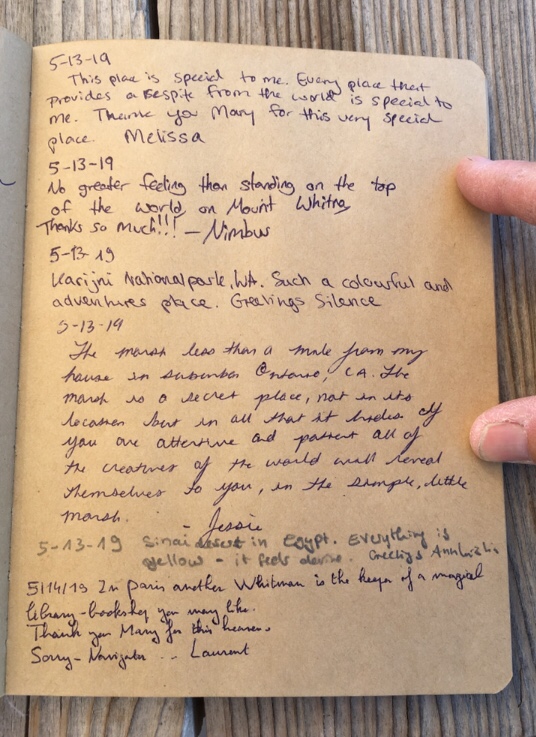 5-13-19
This place is special to me. Every place that
provides a respite from the world is special to
me. Thank you Mary for this very special
place. Melissa
5-13-19
No greater feeling than standing on the top
of the world on Mount Whitny
Thanks so much!!! - Nimbus
5-13-19
Karijni Nationalpark, WA. Such a colourful and
adventures place. Greetings Silence
5-13-19
The marsh less than a mile from my
house in suburban Ontario, CA. The
marsh is a secret place, not in its
location but in all that it hides. If
you are attentive and patient all of
the creatures of the world will reveal
themselves to you, in the simple, little
marsh.
- Jessie
5-13-19 Sinai desert in Egypt. Everything is
yellow - it feels devine. Greetings
5/14/19 In Paris another Whitman is the keeper of a magical
library-bookshop you may like.
Thank you Mary for this heaven.
Sorry-Navigator ... Laurent